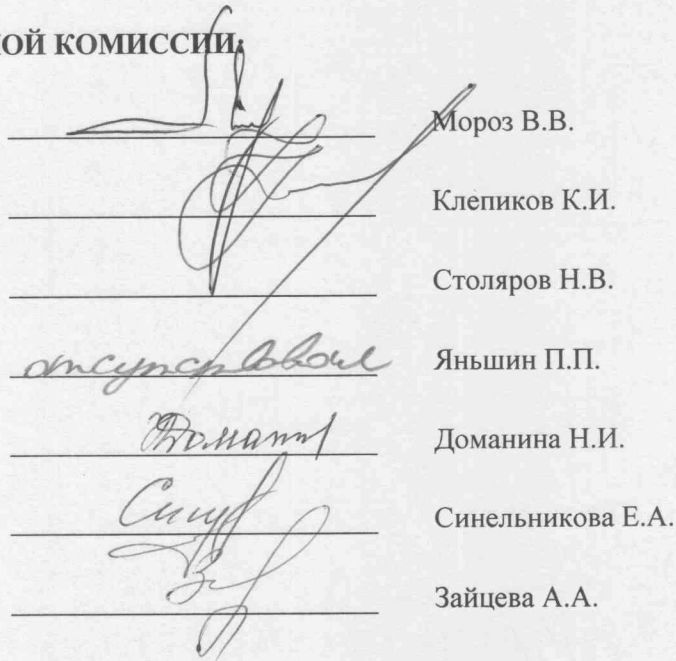 ОЙ КОМИССИИ:
Мороз В.В.
Клепиков К.И.
Столяров Н.В.
отсутствовал Яньшин П.П.
Доманина Н.И.
Синельникова Е.А.
Зайцева А.А.